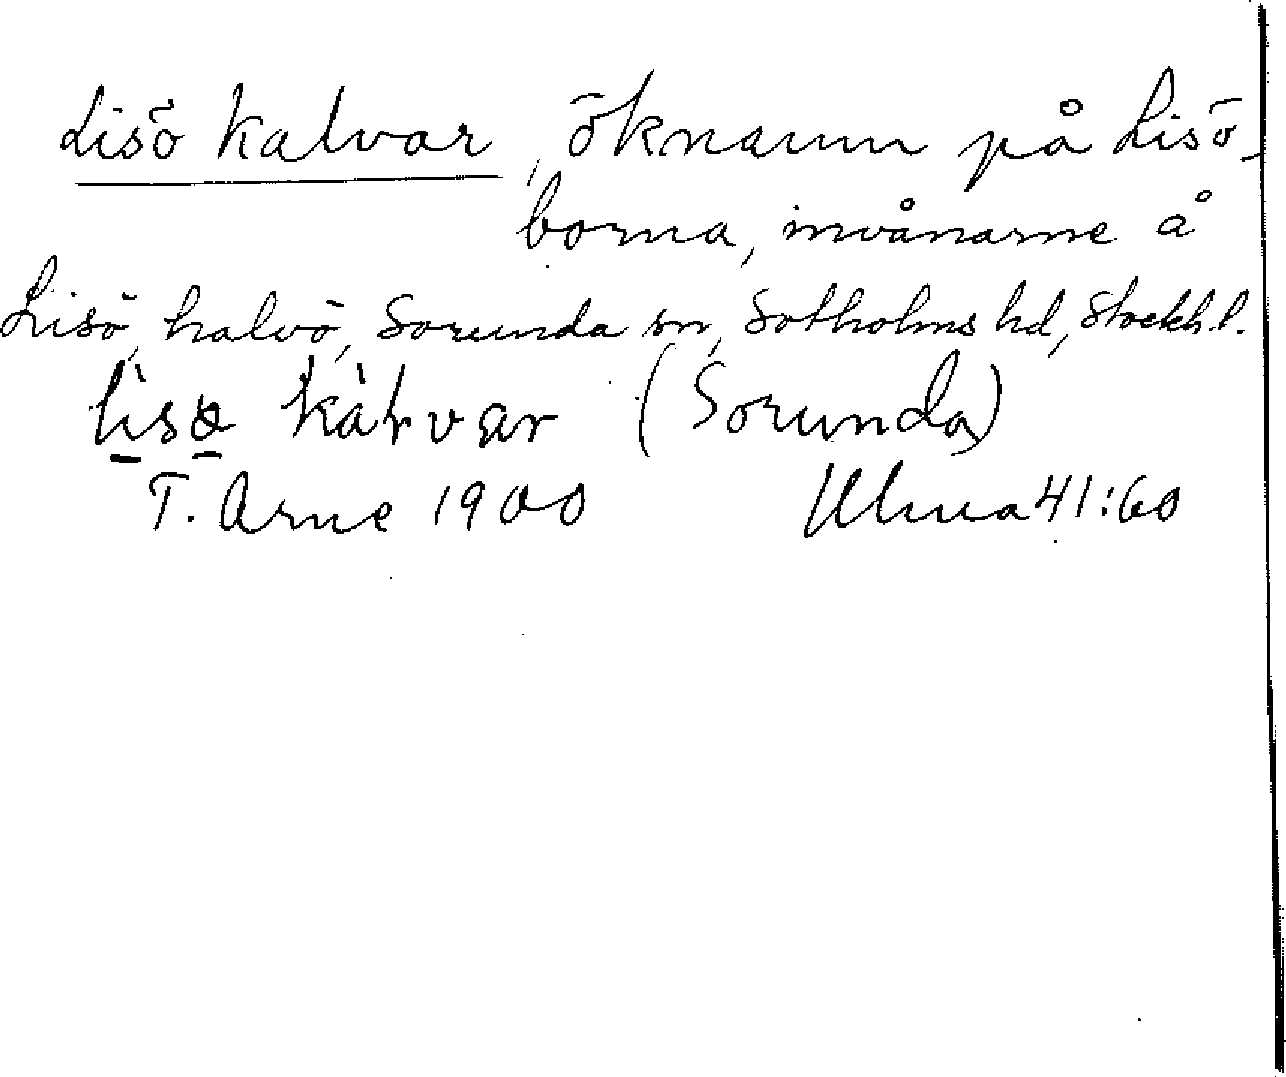 Lisö kalvar, öknamn på Lisö-
borna, invånarne å
Lisö, halvö, Sorunda sn, Sotholms hd, Stockh. l.
(Sorunda)
T. Arne 1900 Ulma 41:60